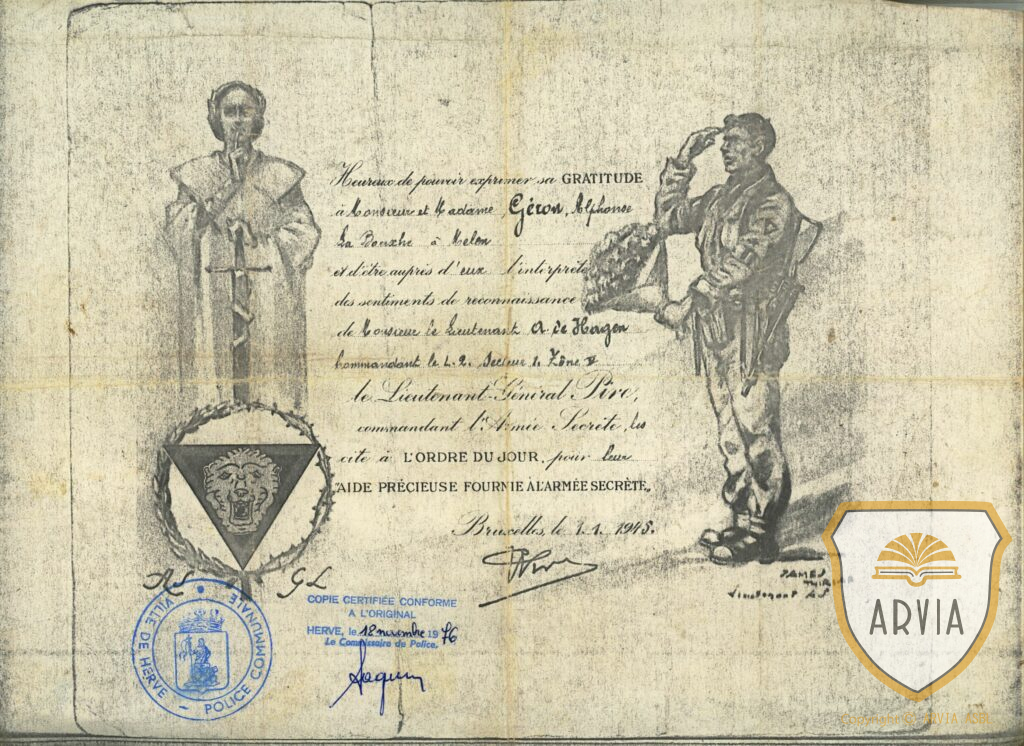 Heureux de pouvoir exprimer sa GRATITUDE
à Monsieur et Madame Géron, Alphonse
La Bouxhe à Melen
et d'être auprès d'eux l'interprète
des sentiments de reconnaissance
de Monsieur le Lieutenant A de Hagen
Commandant le L.2. Secteur 1. Zône V
le Lieutenant-Général Pire,
commandant l'Armée Secrète, les
cite à L'ORDRE DU JOUR, pour leur
"AIDE PRÉCIEUSE FOURNIE À L'ARMÉE SECRÈTE"
Bruxelles, le 1.1.1945.
AS GL
JAMES
THIRIAR
Lieutenant AS
COPIE CERTIFIÉE CONFORME
A L'ORIGINAL
HERVE, le 18 novembre 1976
Le Commissaire de Police,
VILLE DE HERVE - POLICE COMMUNALE
ARVIA